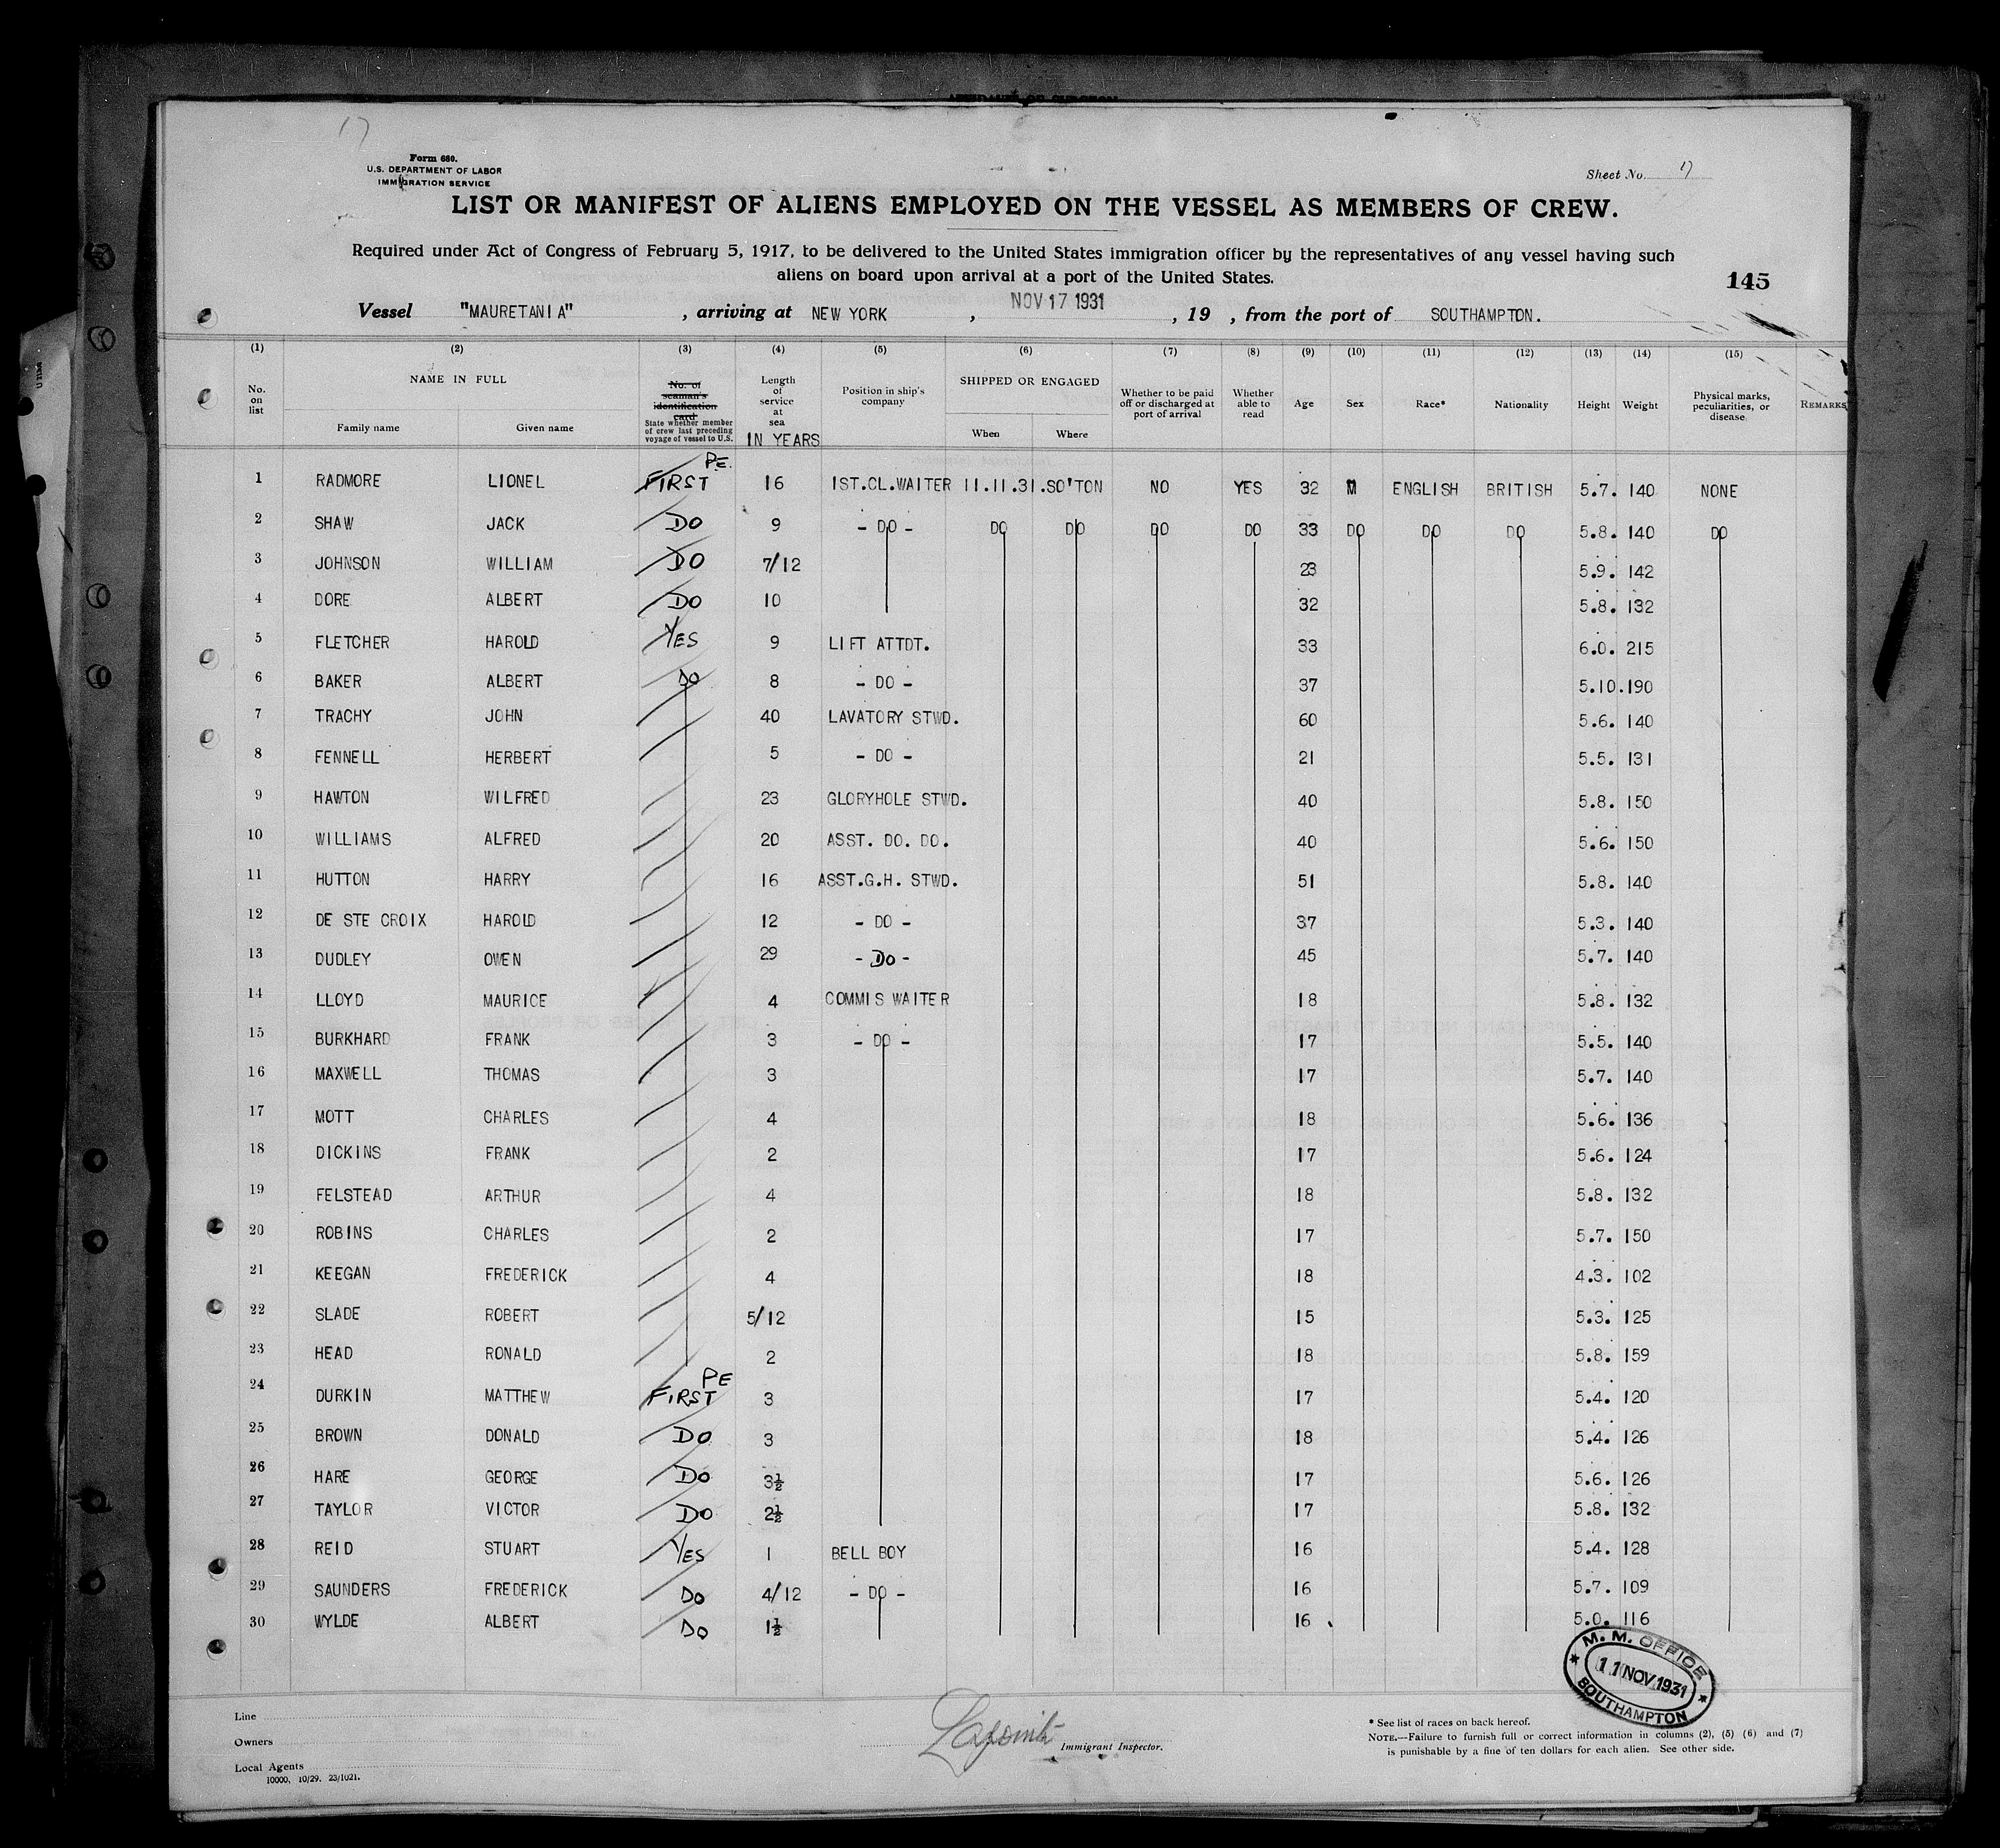 17
Form 680.
U.S. DEPARTMENT OF LABOR
IMMIGRATION SERVICE
Sheet No. 17
LIST OR MANIFEST OF ALIENS EMPLOYED ON THE VESSEL AS MEMBERS OF CREW.
Required under Act of Congress of February 5, 1917, to be delivered to the United States immigration officer by the representatives of any vessel having such
aliens on board upon arrival at a port of the United States.
145
Vessel "MAURETANIA" , arriving at NEW YORK , NOV 17 1931 , 19 , from the port of SOUTHAMPTON.
(1) (2) (3) (4) (5) (6) (7) (8) (9) (10) (11) (12) (13) (14) (15)
No. on list NAME IN FULL Family name Given name No. of seaman's identification card State whether member of crew last preceding voyage of vessel to U.S. Length of service at sea IN YEARS Position in ship's company SHIPPED OR ENGAGED When Where Whether to be paid off or discharged at port of arrival Whether able to read Age Sex Race* Nationality Height Weight Physical marks, peculiarities, or disease REMARKS
1 RADMORE LIONEL FIRST P.E. 16 1ST.CL.WAITER 11.11.31. SO'TON NO YES 32 M ENGLISH BRITISH 5.7. 140 NONE
2 SHAW JACK DO 9 - DO - DO DO DO DO 33 DO DO DO 5.8. 140 DO
3 JOHNSON WILLIAM DO 7/12 23 5.9. 142
4 DORE ALBERT DO 10 32 5.8. 132
5 FLETCHER HAROLD YES 9 LIFT ATTDT. 33 6.0. 215
6 BAKER ALBERT DO 8 - DO - 37 5.10. 190
7 TRACHY JOHN 40 LAVATORY STWD. 60 5.6. 140
8 FENNELL HERBERT 5 - DO - 21 5.5. 131
9 HAWTON WILFRED 23 GLORYHOLE STWD. 40 5.8. 150
10 WILLIAMS ALFRED 20 ASST. DO. DO. 40 5.6. 150
11 HUTTON HARRY 16 ASST.G.H. STWD. 51 5.8. 140
12 DE STE CROIX HAROLD 12 - DO - 37 5.3. 140
13 DUDLEY OWEN 29 - DO - 45 5.7. 140
14 LLOYD MAURICE 4 COMMIS WAITER 18 5.8. 132
15 BURKHARD FRANK 3 - DO - 17 5.5. 140
16 MAXWELL THOMAS 3 17 5.7. 140
17 MOTT CHARLES 4 18 5.6. 136
18 DICKINS FRANK 2 17 5.6. 124
19 FELSTEAD ARTHUR 4 18 5.8. 132
20 ROBINS CHARLES 2 17 5.7. 150
21 KEEGAN FREDERICK 4 18 4.3. 102
22 SLADE ROBERT 5/12 15 5.3. 125
23 HEAD RONALD 2 18 5.8. 159
24 DURKIN MATTHEW FIRST PE 3 17 5.4. 120
25 BROWN DONALD DO 3 18 5.4. 126
26 HARE GEORGE DO 3½ 17 5.6. 126
27 TAYLOR VICTOR DO 2½ 17 5.8. 132
28 REID STUART YES 1 BELL BOY 16 5.4. 128
29 SAUNDERS FREDERICK DO 4/12 - DO - 16 5.7. 109
30 WYLDE ALBERT DO 1½ 16 5.0. 116
M. M. OFFICE
11 NOV 1931
SOUTHAMPTON
Line
Owners
Local Agents
10000, 10/29. 23/1021.
Immigrant Inspector.
* See list of races on back hereof.
NOTE.—Failure to furnish full or correct information in columns (2), (5) (6) and (7)
is punishable by a fine of ten dollars for each alien. See other side.